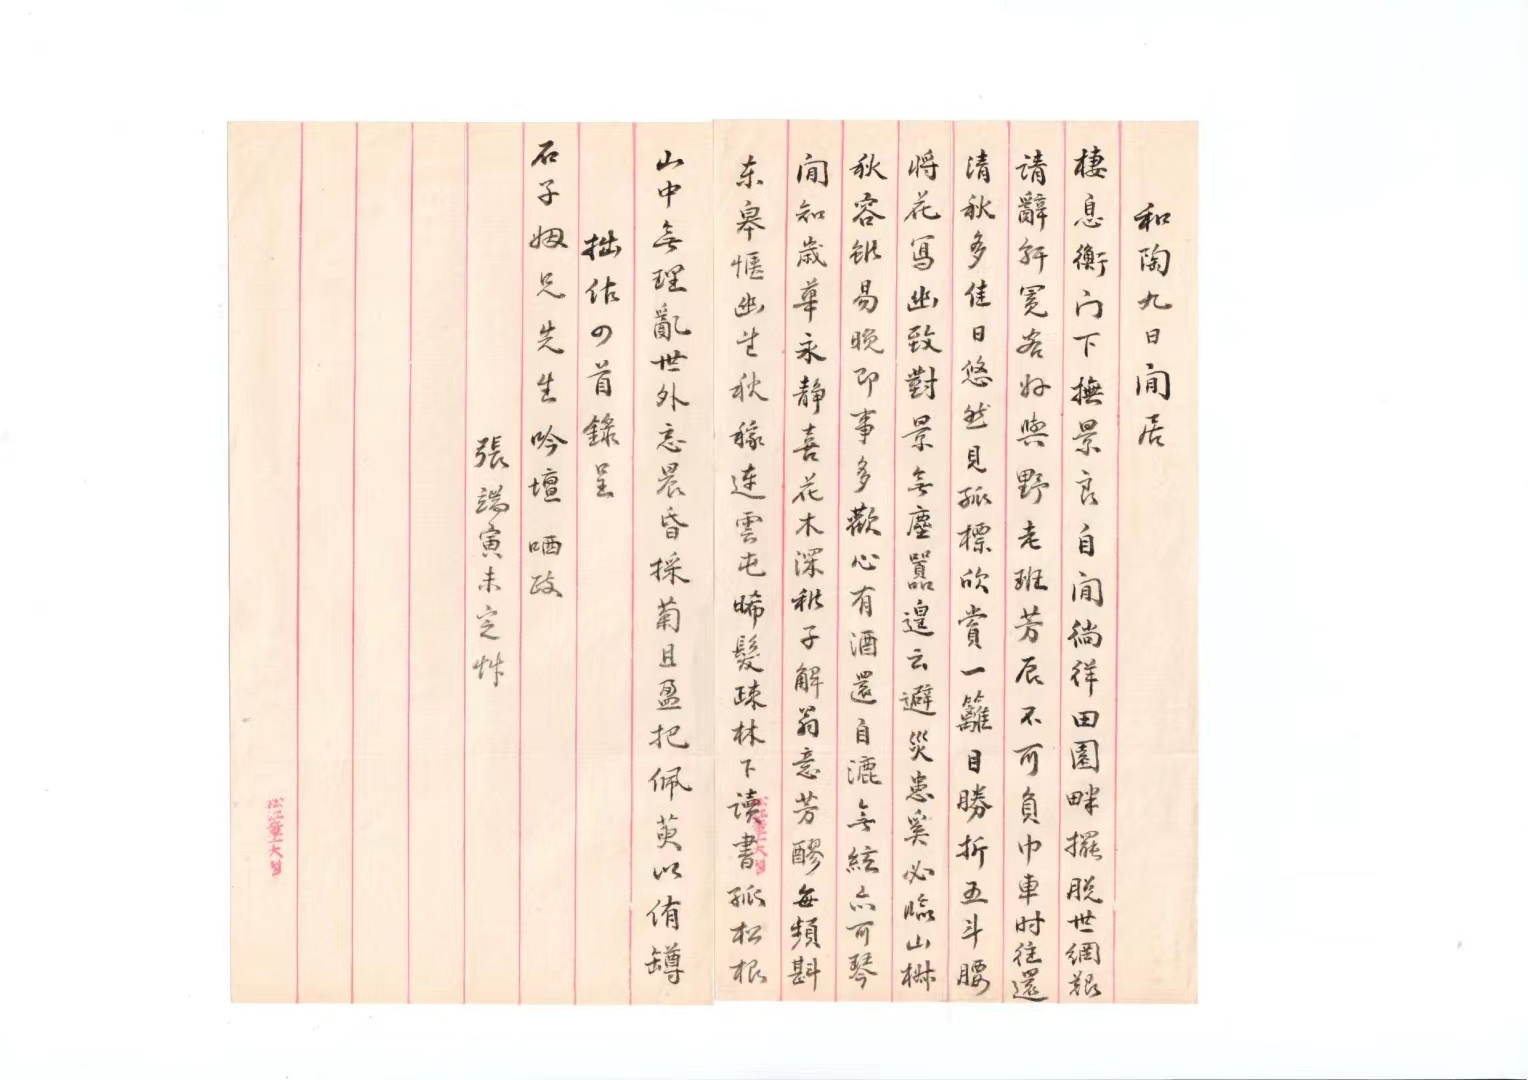 和陶九日閒居
棲息衡门下撫景良自閒徜徉田園畔擺脱世網艱
請辭解冕客好與野老班芳辰不可負巾車时往還
清秋多佳日悠然見孤標欣賞一籬目勝折五斗腰
将花寫幽致對景無塵囂遑云避災患奚必臨山椒
秋容雖易晚即事多歡心有酒還自漉無絃亦可琴
閒知歲華永静喜花木深稚子解翁意芳醪每頻斟
东皋愜幽
秋稼連雲屯晞髮疎林下读書孤松根
山中無理亂世外忘晨昏採菊且盈把佩萸以侑罇
拙作四首錄呈
石子姻兄先生吟壇哂政
張端寅未定艸